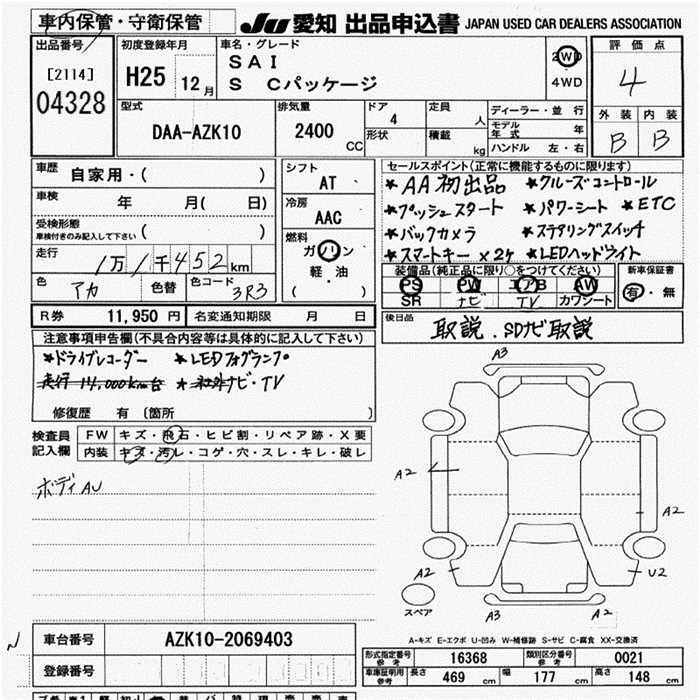 車内保管・守衛保管 JU 愛知 出品申込書 JAPAN USED CAR DEALERS ASSOCIATION
出品番号 初度登録年月 車名・グレード 評価点
[2114] H25 12月 SAI 2WD 4
04328 S Cパッケージ 4WD
型式 排気量 ドア 定員 ディーラー・並行 外装 内装
DAA-AZK10 2400 CC 4 人 モデル年式 年 B B
形状 積載 kg ハンドル 左・右
車歴 自家用・( ) シフト AT セールスポイント(正常に機能するものに限ります)
車検 年 月( 日) 冷房 AAC ★AA初出品 ★クルーズコントロール
受検形態 車検付きのみ記入して下さい ( ) ★プッシュスタート ★パワーシート ★ETC
走行 1万1千452km 燃料 ガソリン ★バックカメラ ★ステアリングスイッチ
軽・油 ★スマートキー×2ヶ ★LEDヘッドライト
色 アカ 色替 色コード 3R3 ( )
装備品(純正品に限り○をつけてください) 新車保証書
PS PW エアB AW 有・無
SR ナビ TV カワシート
R券 11,950円 名変通知期限 月 日 後日品 取説.SDナビ取説
注意事項申告欄(不具合内容等は具体的に記入して下さい)
★ドライブレコーダー ★LEDフォグランプ
走行14,000km台 ★社外ナビ・TV
修復歴 有 (箇所 )
検査員記入欄 FW キズ・飛石・ヒビ割・リペア跡・X要
内装 キズ・汚レ・コゲ・穴・スレ・キレ・破レ
ボディAU
A3
A2
A2
A2 U2
スペア
A3 A2
A-キズ E-エクボ U-凹み W-補修跡 S-サビ C-腐食 XX-交換済
車台番号 AZK10-2069403
型式指定番号 参考 16368 類別区分番号 参考 0021
登録番号
車庫証明用 参考 長さ 469 cm 幅 177 cm 高さ 148 cm